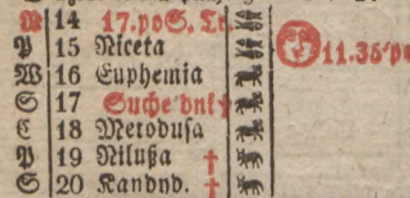 N 14 17. po S. Tr.
P 15 Niceta 11.35 po
W 16 Euphemia
S 17 Suche dni †
C 18 Metodusa
P 19 Nilußa †
S 20 Kandyd. †